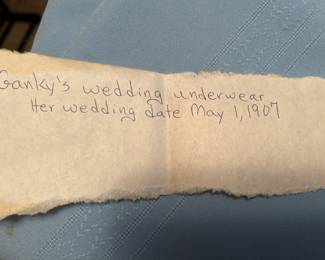 Ganky's wedding underwear
Her wedding date May 1, 1907